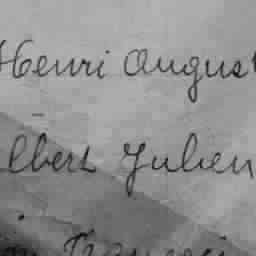 Henri August
lbert Julien